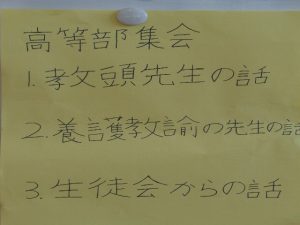 高等部集会
1.教頭先生の話
2.養護教諭の先生の話
3.生徒会からの話